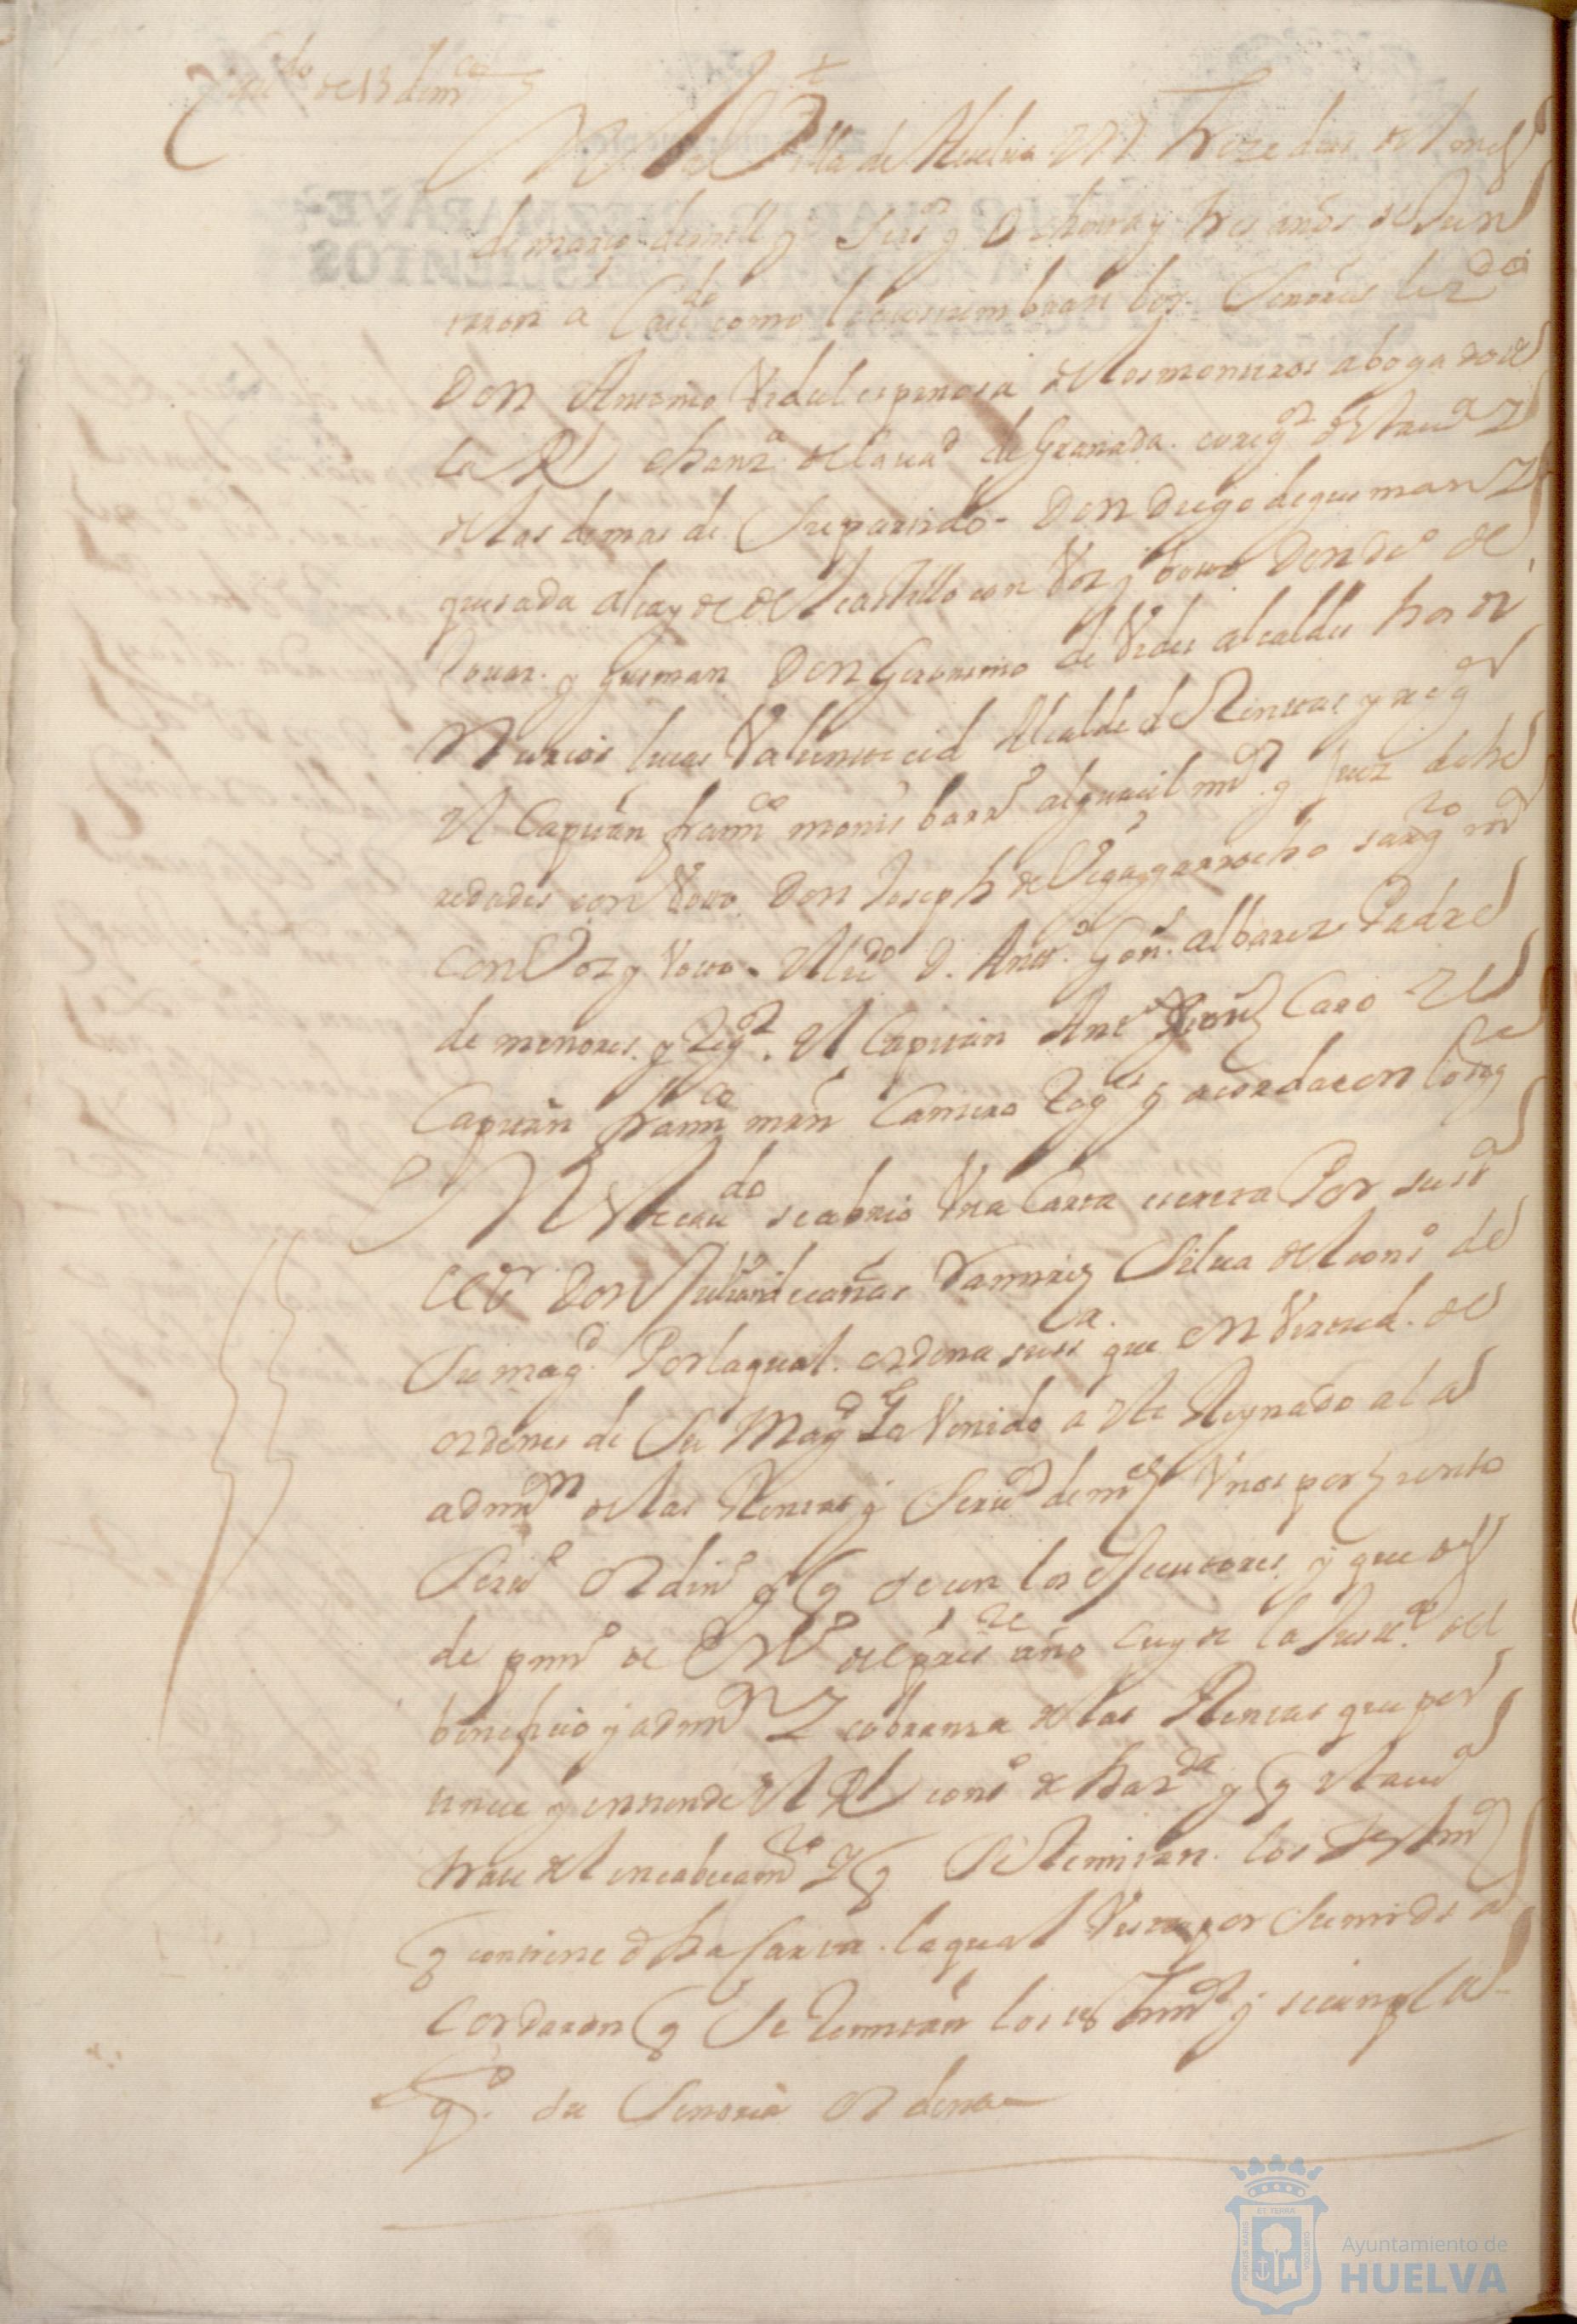 Cau.do de 13 de m.ço
En la Villa de Huelua en Treze dias del mes
de março de mill y seis.os y ochenta y tres años se Jun
taron a Cau.do como lo acostumbran los Señores lizdo
Don Antonio Vidal espinosa de los monteros abogado de
la Rl chanz.a de la ciud de Granada coreg.or desta uª y
de las demas de su partido - Don Diego de guzman y
quesada alcayde del castillo con Voz y boto Don de
touar y guzman Don Geronimo de Vides alcaldes hor.
Marcos lucas Valiente cid Alcalde de Rentas y reg.or
el Capitan fran.co monis barr.o alguacil m.or y Juez de he
redades con Voto Don Joseph de Vega garrocho sarg.to m.or
con Voz y Voto - el lic.do D. Ant.o Gon.s albarez Padre
de menores y Reg.or el Capitan Ant.o Caro el
Capitan fran.co mrn Camero Reg.es y acordaron lo sig.te
En este cau.do se abrio Vna Carta escrita Por su s.ª
el s.or Don Julian de cañas Ramirez Silua del cons.o de
Su mag.d Por la qual ordena su s.ª que en Virtud de
ordenes de Su Mag.d ha Venido a este Reynado a la
admin.on de las Rentas y Seru.o de m.es Vnos por ziento
Seru.o ordin.o y q sean los ejecutores y que des
de prim.o de En.o del pres.te año cuyde la Just.a del
beneficio y adm.on y cobranza de las Rentas que per
tenece y entiende el Rl cons.o de haz.da y q esta uª
trate del encabezam.to y q Se Remitan los testim.os
q contiene dha Carta la qual Vista por su mrd. a
Cordaron q Se Remitan los testim.os y se cumpla
q.to su Señoria ordena
Ayuntamiento de
HUELVA